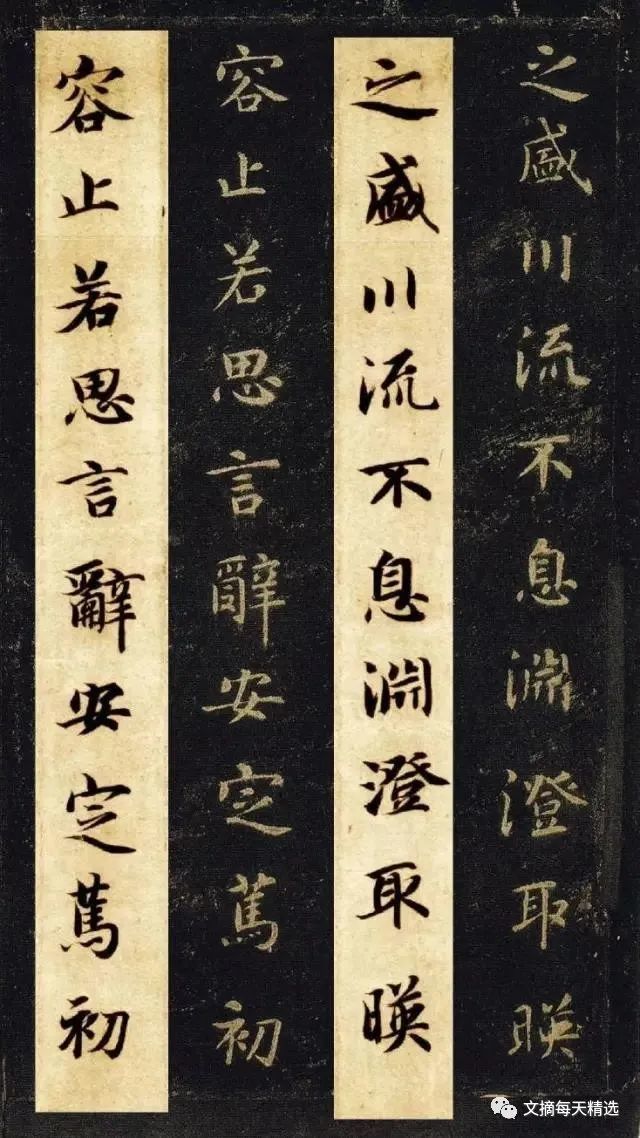 之盛川流不息淵澄取暎
之盛川流不息淵澄取暎
容止若思言辭安定篤初
容止若思言辭安定篤初
文摘每天精选